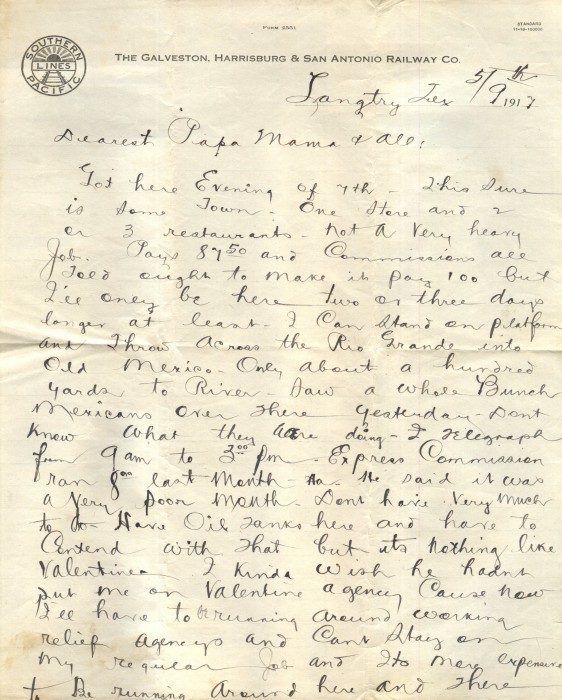 Form 2351
STANDARD
SOUTHERN PACIFIC
LINES
THE GALVESTON, HARRISBURG & SAN ANTONIO RAILWAY CO.
Langtry Tex 5/9th 1917
Dearest Papa Mama & All:
Got here Evening of 7th - This Sure
is Some Town - One Store and 2
or 3 restaurants - Not a Very heavy
Job. Pays 8750 and Commissions all
Told ought to make it pay 100 but
I'll only be here two or three days
longer at least. I Can Stand on platform
and Throw Across the Rio Grande into
Old Mexico - Only About a hundred
yards to River - Saw a whole Bunch
Mexicans Over There yesterday - Dont
Know What they are doing - I Telegraph
from 9 am to 3:00 pm - Express Commission
ran last Month - He said it was
a Very poor Month - Dont have Very Much
to do - Have Oil Tanks here and have to
Contend with That but its nothing like
Valentine - I Kinda wish he hadnt
put me on Valentine agency Cause now
I'll have to be running around working
relief agencys and Cant Stay on
my regular Job and Its more expensive
to Be running Around here and There